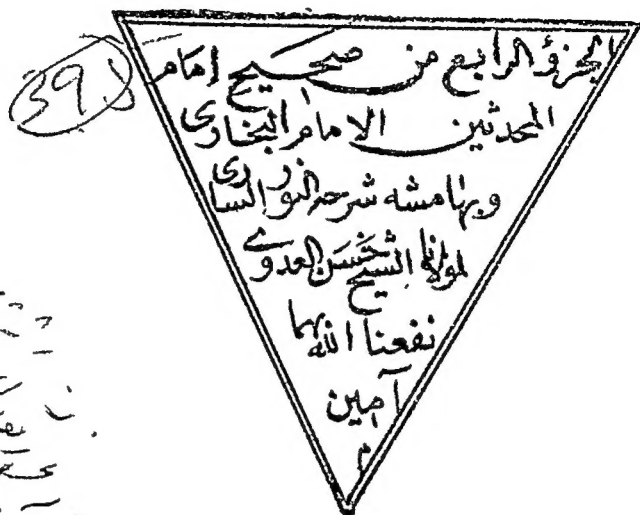 الجزؤ الرابع من صحيح إمام
المحدثين الامام البخارى
وبهامشه شرحه النور السارى
لمولانا الشيخ حسن العدوى
نفعنا الله بهما
آمين
م
39